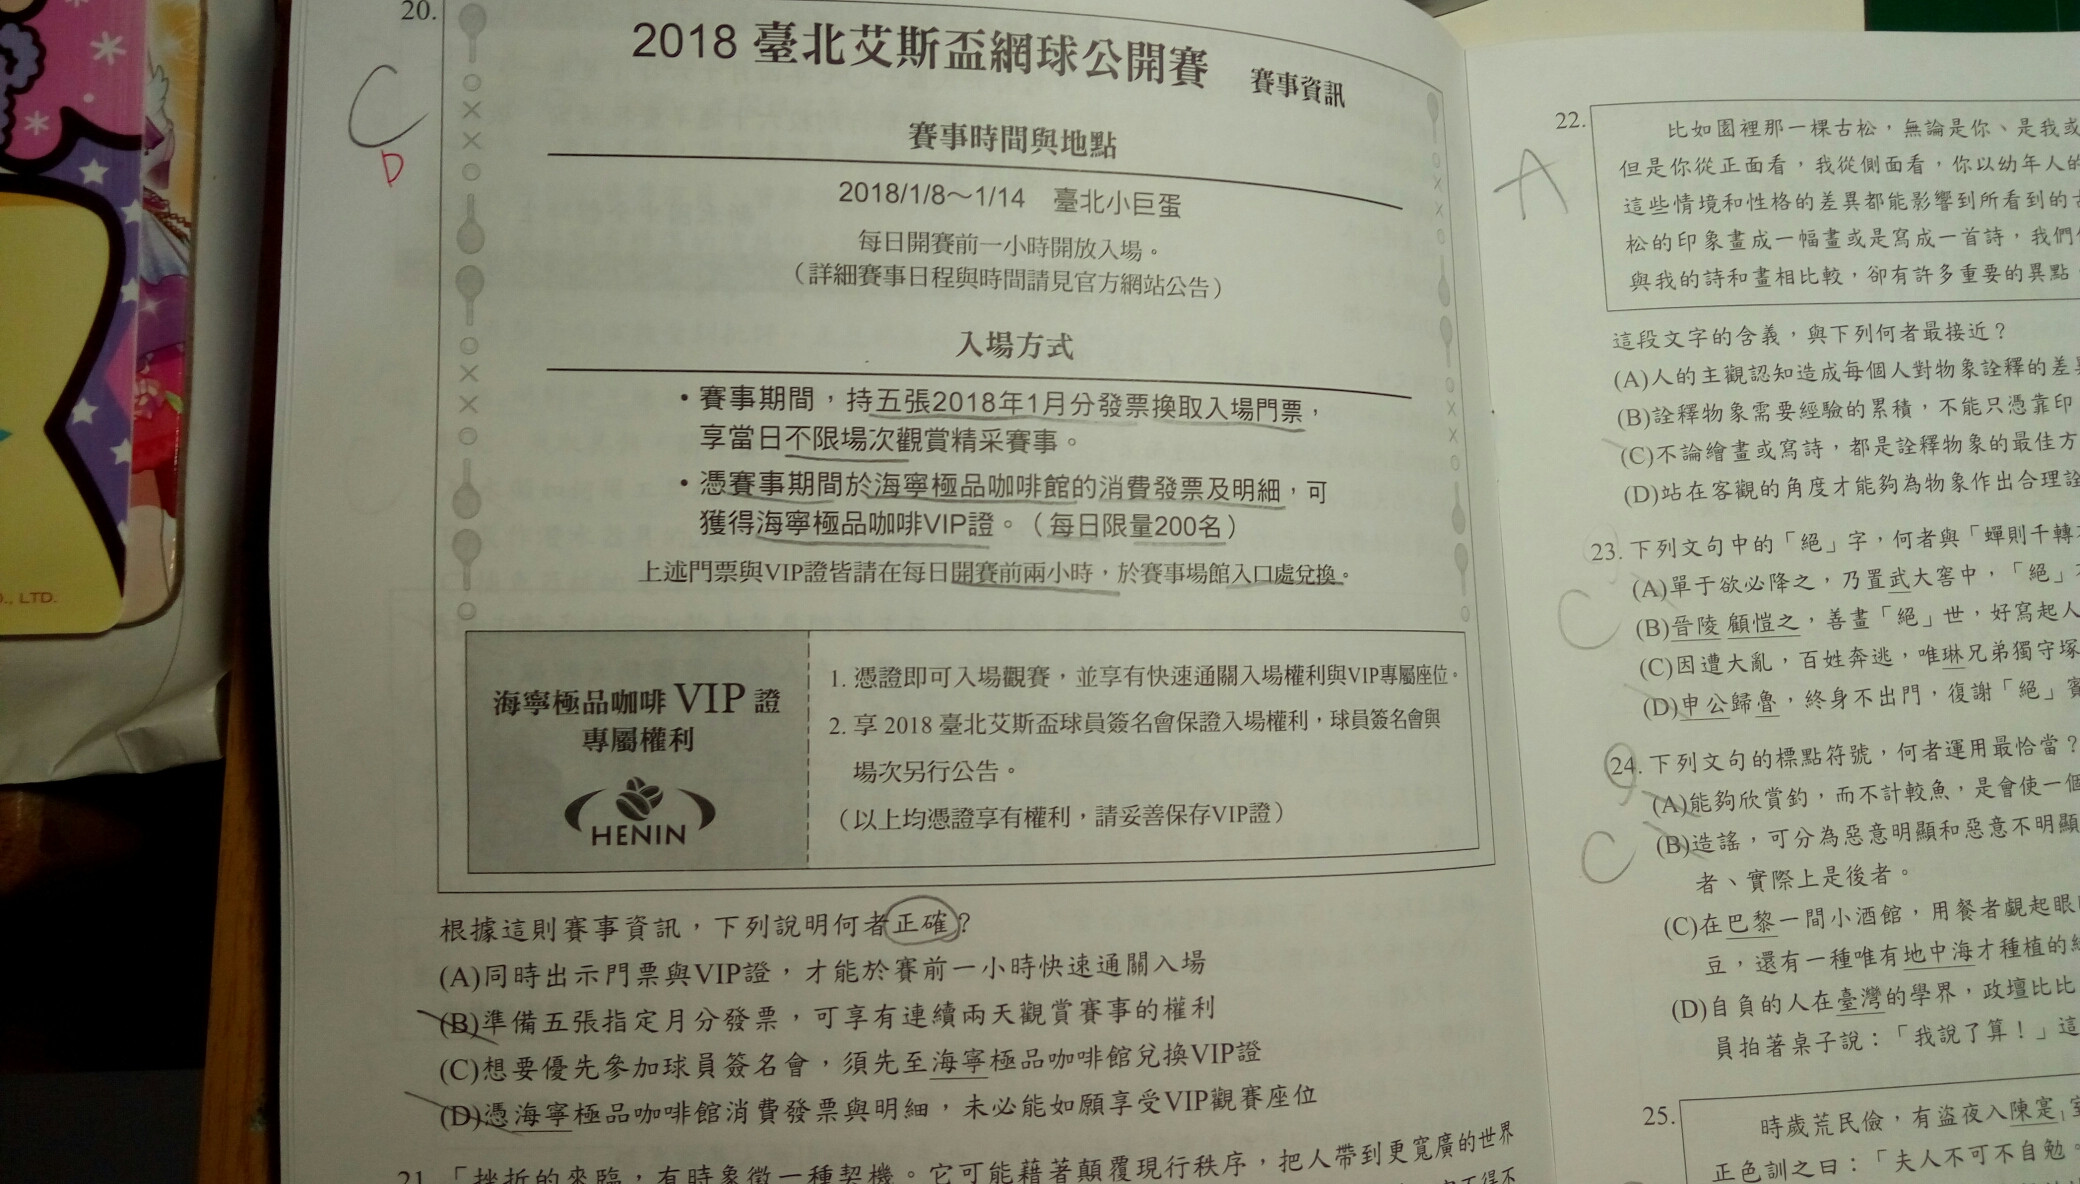 20.
2018 臺北艾斯盃網球公開賽 賽事資訊
C
D
賽事時間與地點
2018/1/8～1/14 臺北小巨蛋
每日開賽前一小時開放入場。
（詳細賽事日程與時間請見官方網站公告）
入場方式
•賽事期間，持五張2018年1月分發票換取入場門票，
享當日不限場次觀賞精采賽事。
•憑賽事期間於海寧極品咖啡館的消費發票及明細，可
獲得海寧極品咖啡VIP證。（每日限量200名）
上述門票與VIP證皆請在每日開賽前兩小時，於賽事場館入口處兌換。
海寧極品咖啡 VIP 證
專屬權利
HENIN
1. 憑證即可入場觀賽，並享有快速通關入場權利與VIP專屬座位。
2. 享 2018 臺北艾斯盃球員簽名會保證入場權利，球員簽名會與
場次另行公告。
（以上均憑證享有權利，請妥善保存VIP證）
根據這則賽事資訊，下列說明何者正確？
(A)同時出示門票與VIP證，才能於賽前一小時快速通關入場
(B)準備五張指定月分發票，可享有連續兩天觀賞賽事的權利
(C)想要優先參加球員簽名會，須先至海寧極品咖啡館兌換VIP證
(D)憑海寧極品咖啡館消費發票與明細，未必能如願享受VIP觀賽座位
21.「挫折的來臨，有時象徵一種契機。它可能藉著顛覆現行秩序，把人帶到更寬廣的世界
22.
A
比如園裡那一棵古松，無論是你、是我或
但是你從正面看，我從側面看，你以幼年人的
這些情境和性格的差異都能影響到所看到的古
松的印象畫成一幅畫或是寫成一首詩，我們
與我的詩和畫相比較，卻有許多重要的異點
這段文字的含義，與下列何者最接近？
(A)人的主觀認知造成每個人對物象詮釋的差異
(B)詮釋物象需要經驗的累積，不能只憑靠印
(C)不論繪畫或寫詩，都是詮釋物象的最佳方
(D)站在客觀的角度才能夠為物象作出合理詮
23. 下列文句中的「絕」字，何者與「蟬則千轉
C
(A)單于欲必降之，乃置武大窖中，「絕」
(B)晉陵 顧愷之，善畫「絕」世，好寫起人
(C)因遭大亂，百姓奔逃，唯琳兄弟獨守塚
(D)申公歸魯，終身不出門，復謝「絕」賓
24. 下列文句的標點符號，何者運用最恰當？
C
(A)能夠欣賞釣，而不計較魚，是會使一個
(B)造謠，可分為惡意明顯和惡意不明顯
者、實際上是後者。
(C)在巴黎一間小酒館，用餐者覷起眼
豆，還有一種唯有地中海才種植的
(D)自負的人在臺灣的學界，政壇比比
員拍著桌子說：「我說了算！」這
25.
時歲荒民儉，有盜夜入陳寔
正色訓之曰：「夫人不可不自勉。
O., LTD.